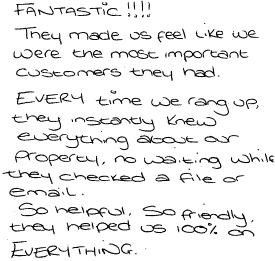 FANTASTIC !!!!
They made us feel like we
were the most important
customers they had.
EVERY time we rang up,
they instantly knew
everything about our
property, no waiting while
they checked a file or
email.
So helpful, So friendly,
they helped us 100% on
EVERYTHING.